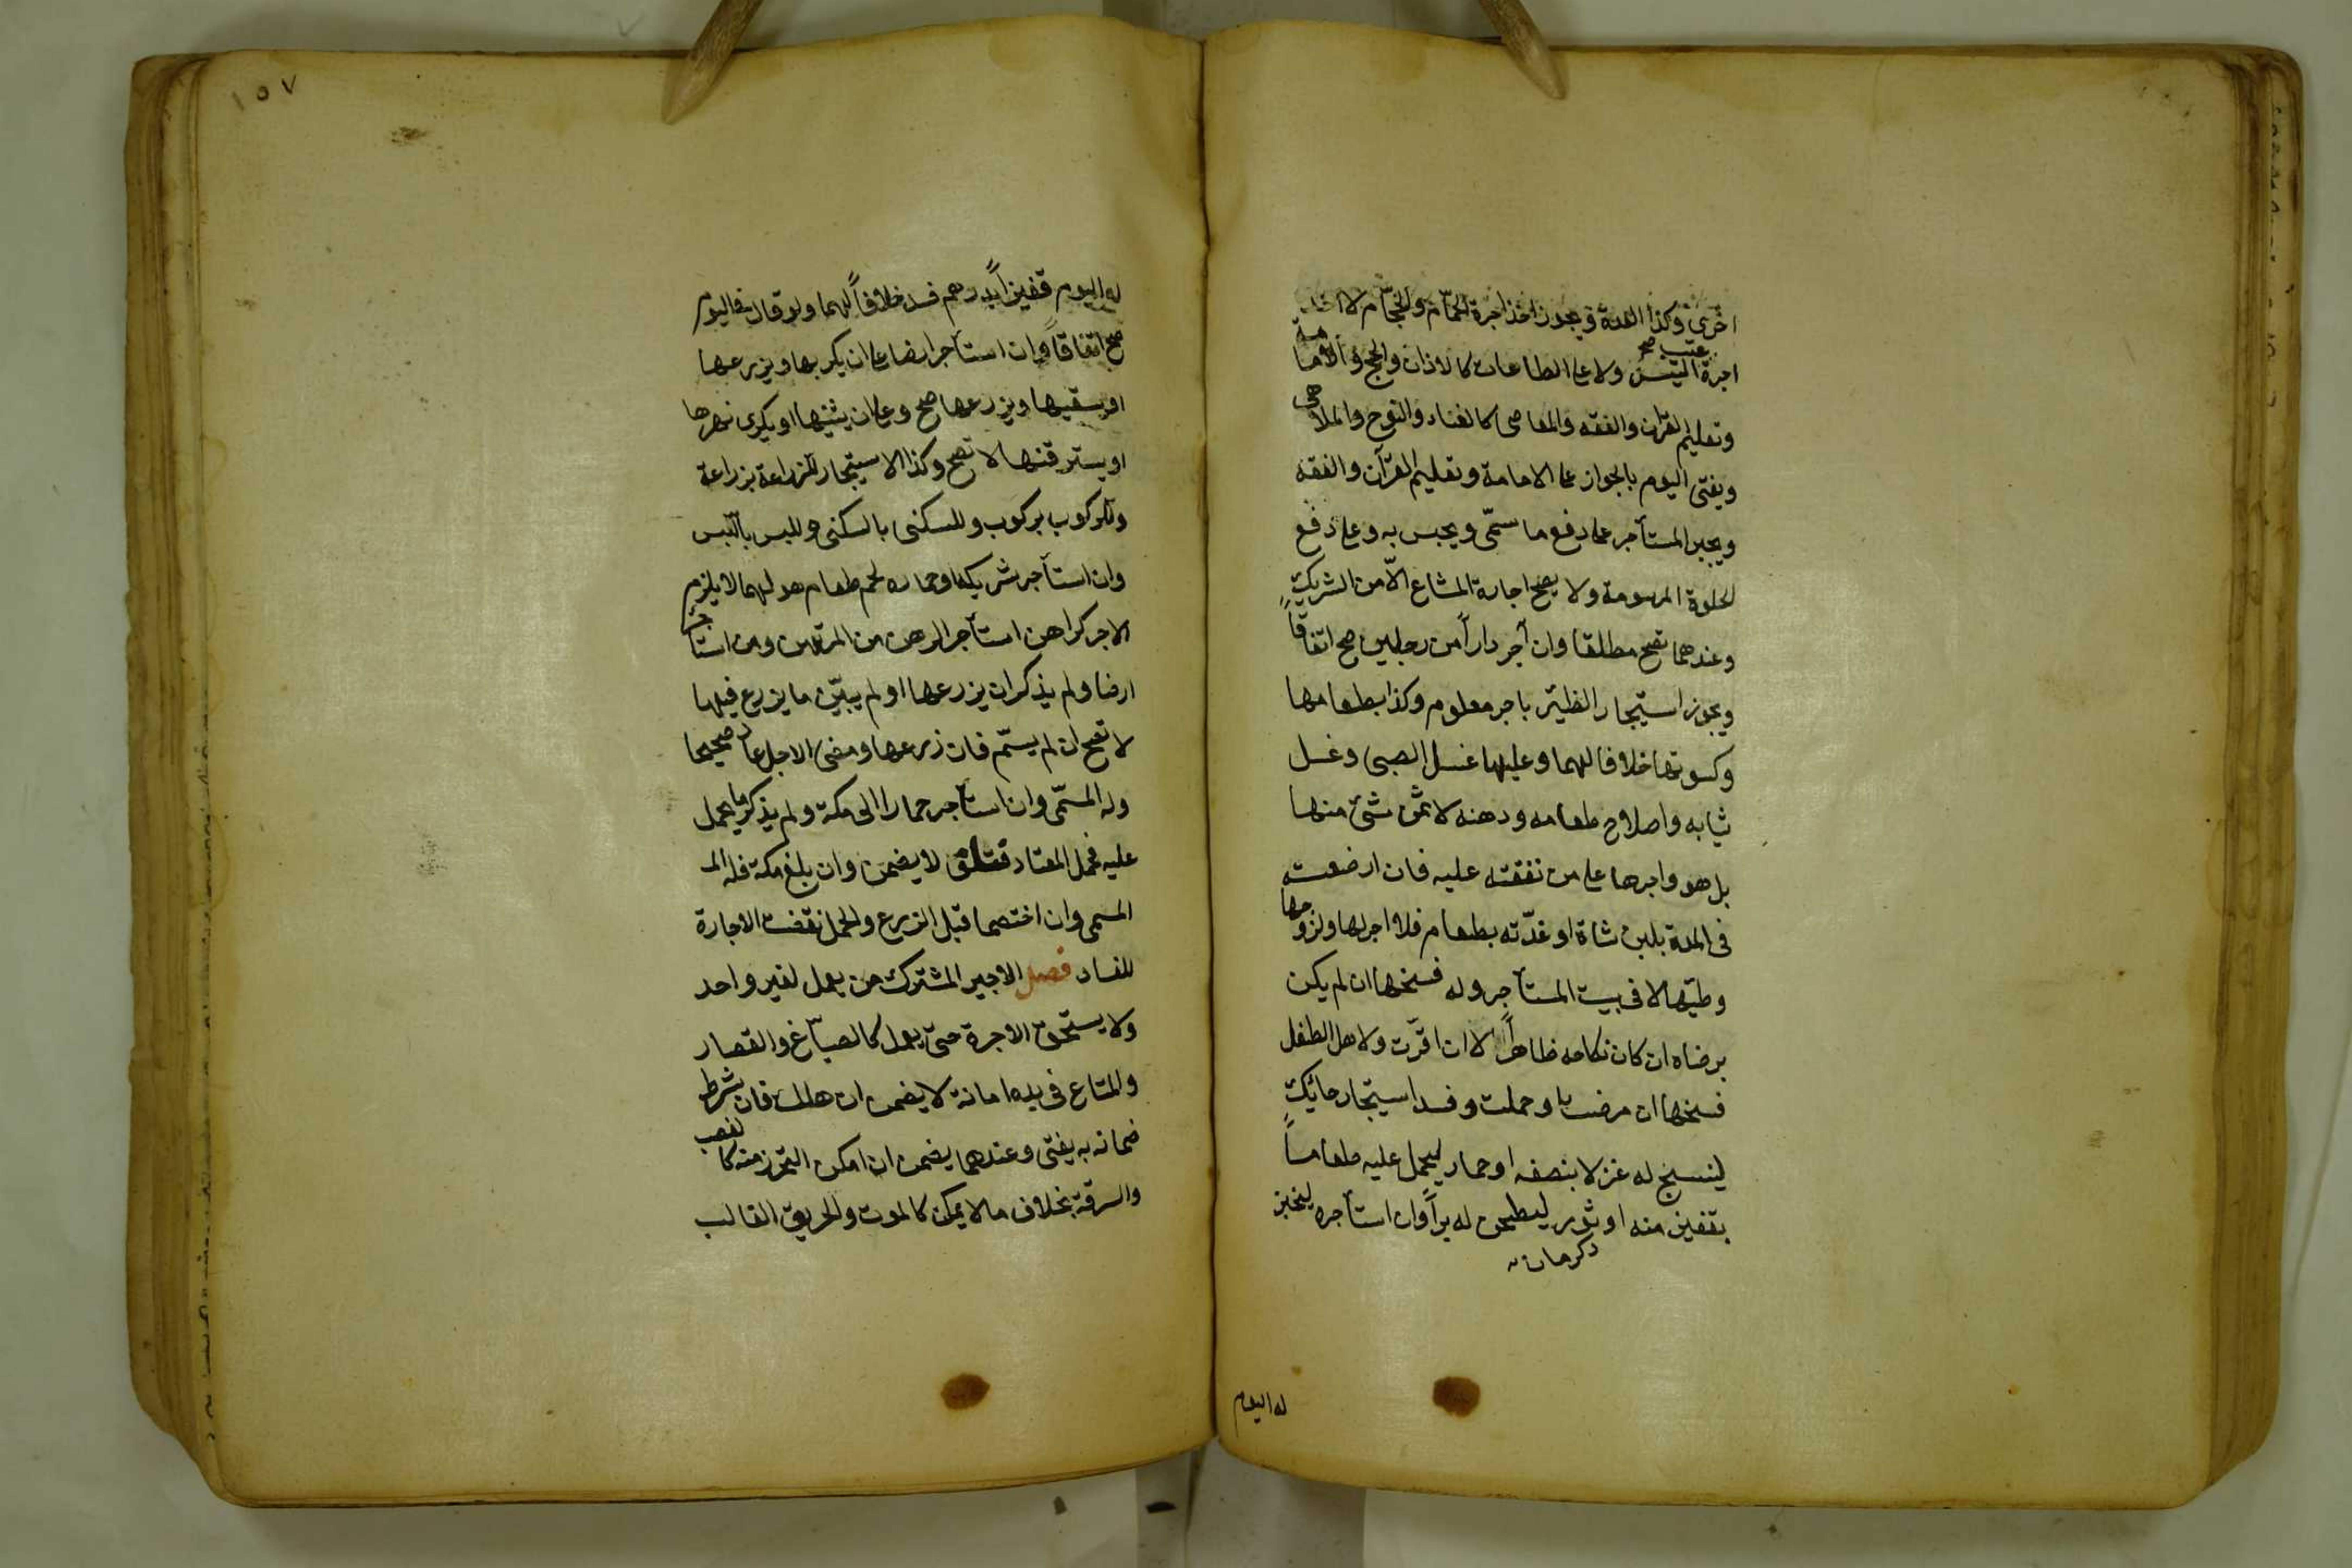 اخرى وكذا العدة ويجوز اخذ اجرة الحمّام والحجّام لا اخذ
اجرة عسب التيس ولا على الطاعات كالاذان والحج والامامة
وتعليم القرآن والفقه والمعاصى كالغناء والنوح والملاهى
ويفتى اليوم بالجواز على الامامة وتعليم القرآن والفقه
ويجبر المستأجر على دفع ما سمّى ويحبس به وعلى دفع
الحلوة المرسومة ولا يصح اجارة المشاع الّا من الشريك
وعندهما تصح مطلقا وان آجر داراً من رجلين صح اتفاقاً
ويجوز استيجار الظئر باجر معلوم وكذا بطعامها
وكسوتها خلافا لهما وعليها غسل الصبى وغسل
ثيابه واصلاح طعامه ودهنه لا ثمن شئ منها
بل هو واجرها على من نفقته عليه فان ارضعت
فى المدة بلبن شاة او غذّته بطعام فلا اجر لها ولزوجها
وطئها لا فى بيت المستأجر وله فسخها ان لم يكن
برضاه ان كان نكاحه ظاهراً لا ان اقرّت ولاهل الطفل
فسخها ان مرضت او حملت وفسد استيجار حائك
لينسج له غزلا بنصفه او حمار ليحمل عليه طعاماً
بقفيز منه او ثور ليطحن له براً وان استأجره ليخبز
له اليوم
١٥٧
له اليوم قفيزاً بدرهم فسد خلافاً لهما ولو قال فى اليوم
صح اتفاقاً وان استأجر ارضا على ان يكربها ويزرعها
او يسقيها ويزرعها صح وعلى ان يثنيها او يكرى نهرها
او يسترقنها لا تصح وكذا الاستيجار للزراعة بزراعة
وللركوب بركوب وللسكنى بالسكنى وللبس باللبس
وان استأجر شريكه او حماره لحمل طعام هو لهما لا يلزم
الاجر كراهن استأجر الرهن من المرتهن ومن استأجر
ارضا ولم يذكر ان يزرعها او لم يبيّن ما يزرع فيها
لا تصح ان لم يسمّم فان زرعها ومضى الاجل عاد صحيحا
وله المسمّى وان استأجر حمارا الى مكة ولم يذكر ما يحمل
عليه فحمل المعتاد فتلف لا يضمن وان بلغ مكة فله الم
المسمى وان اختصما قبل الزرع والحمل نقضت الاجارة
للفساد فصل الاجير المشترك من يعمل لغير واحد
ولا يستحق الاجرة حتى يعمل كالصبّاغ والقصار
والمتاع فى يده امانة لا يضمن ان هلك فان بشرط
ضمانه به يفتى وعندهما يضمن ان امكن التحرز منه كالغصب
والسرقة بخلاف ما لا يمكن كالموت والحريق الغالب